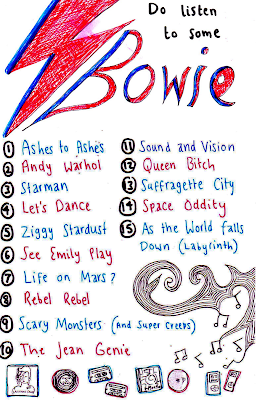 Do listen
to some
Bowie
1 Ashes to Ashes
2 Andy Warhol
3 Starman
4 Let's Dance
5 Ziggy Stardust
6 See Emily Play
7 Life on Mars?
8 Rebel Rebel
9 Scary Monsters (And Super Creeps)
10 The Jean Genie
11 Sound and Vision
12 Queen Bitch
13 Suffragette City
14 Space Oddity
15 As the World Falls
Down (Labyrinth)